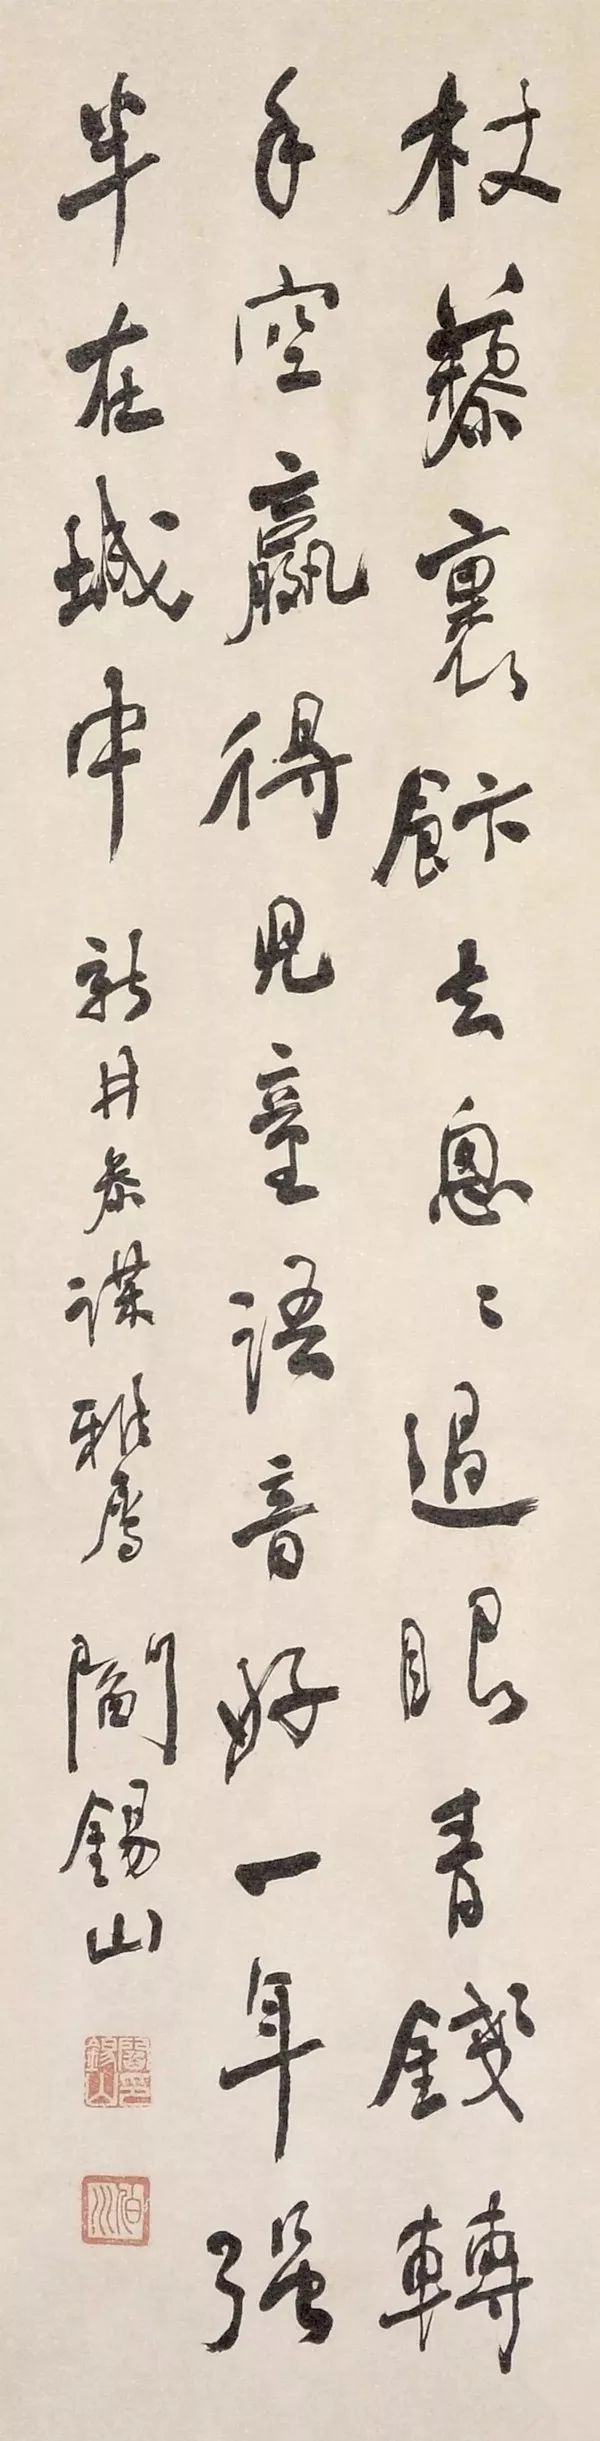 杖藜裹飰去怱〻過眼青錢轉
手空贏得兒童語音好一年強
半在城中 新井參謀雅属 閻錫山
閻錫山印
伯川